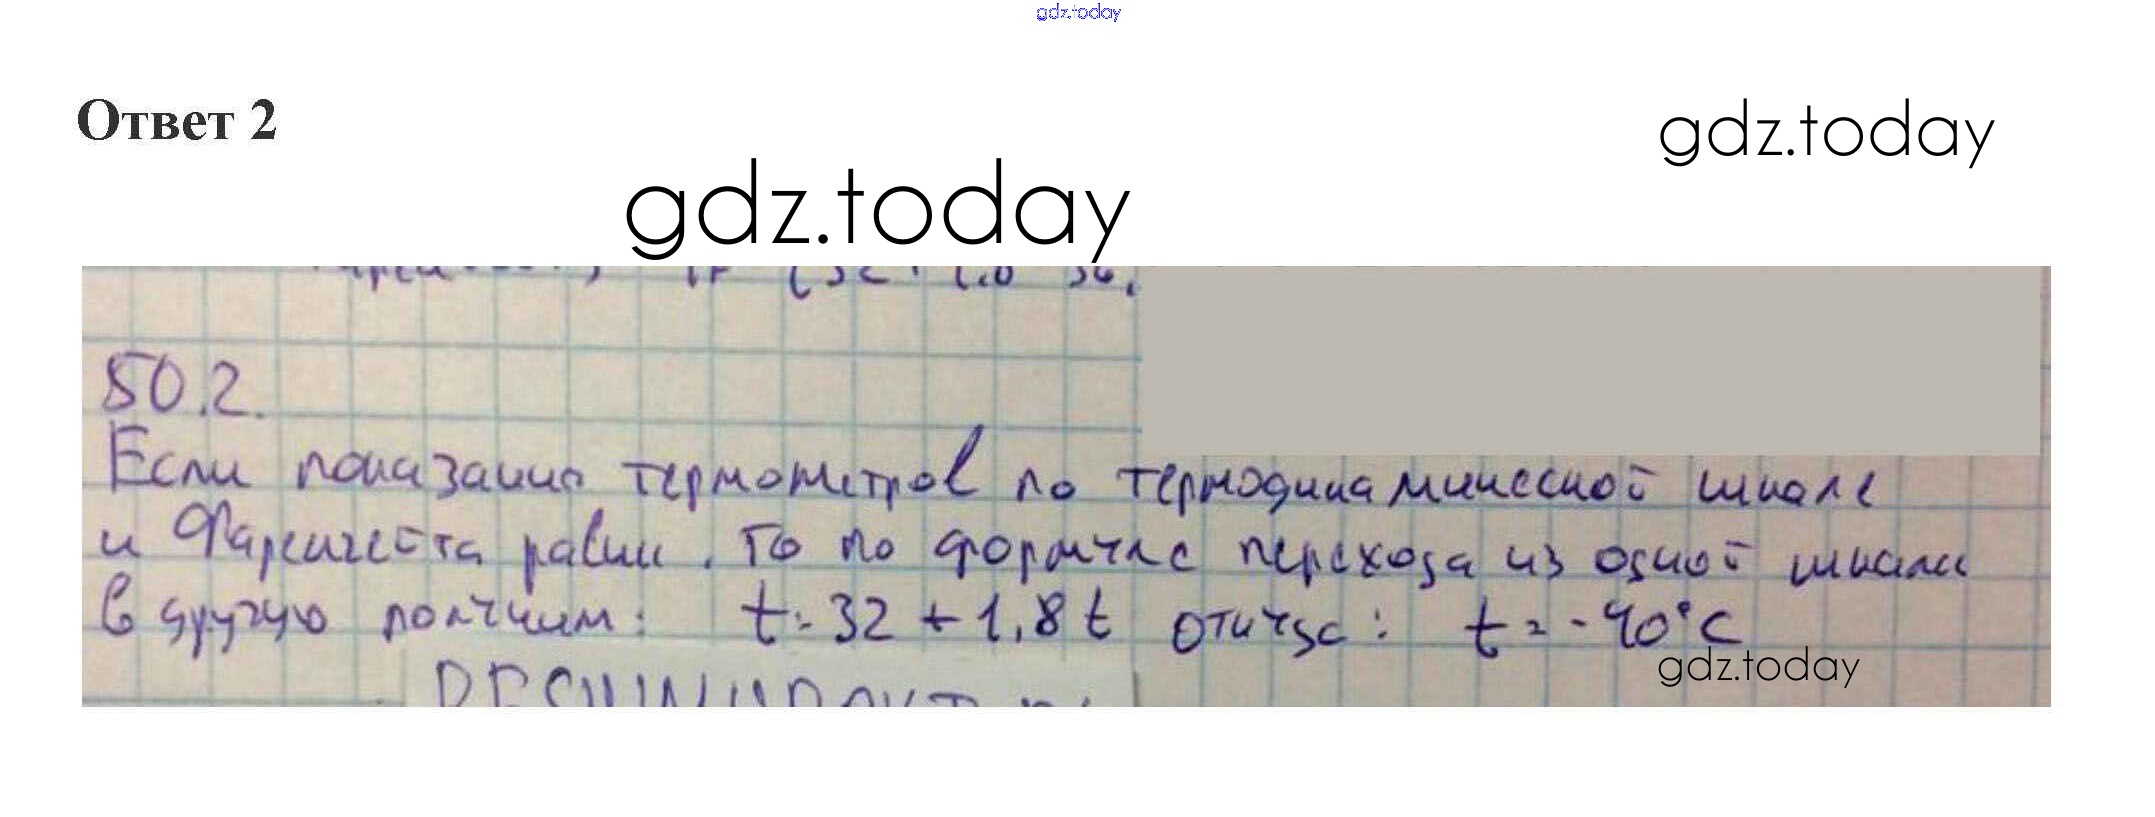 gdz.today
Ответ 2
gdz.today
gdz.today
50.2.
Если показания термометров по термодинамической шкале
и Фаренгейта равны, то по формуле перехода из одной шкалы
в другую получим: t = 32 + 1,8 t откуда: t = -40°C
gdz.today